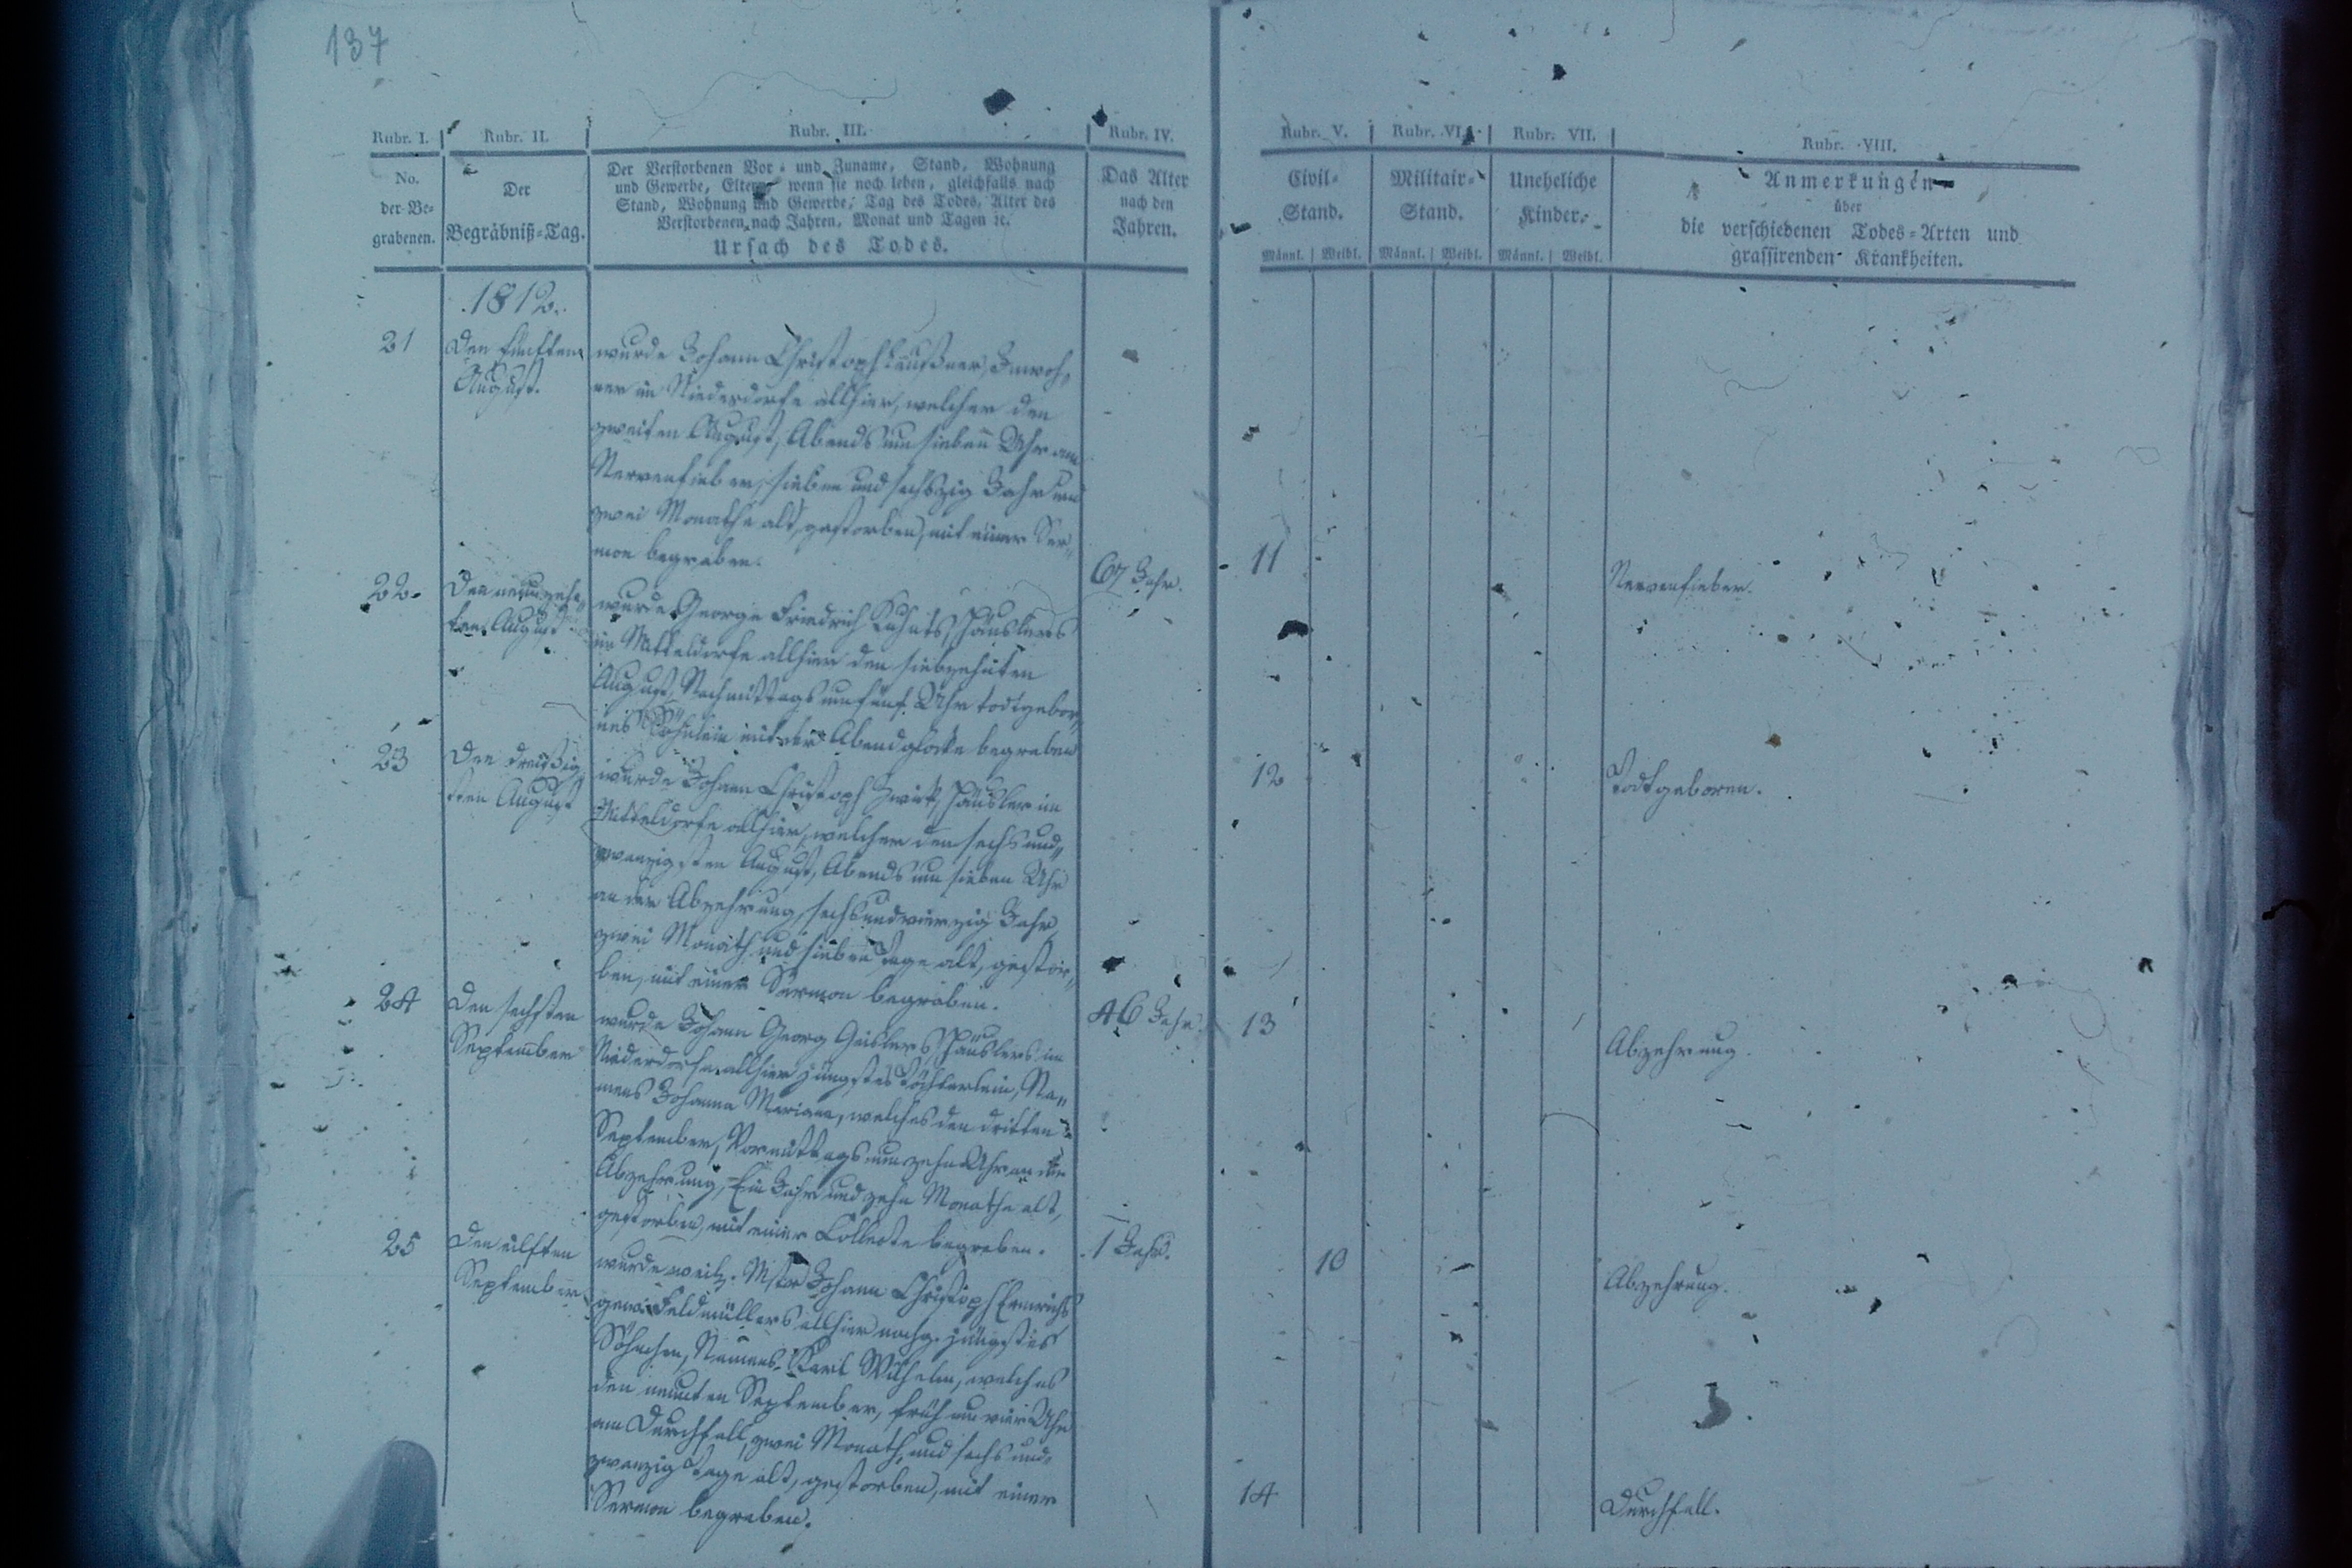 137
Rubr. I. Rubr. II. Rubr. III. Rubr. IV. Rubr. V. Rubr. VI. Rubr. VII. Rubr. VIII.
No.
der Be-
grabenen.
Der
Begräbniß-Tag.
Der Verstorbenen Vor- und Zuname, Stand, Wohnung
und Gewerbe, Eltern, wenn sie noch leben, gleichfalls nach
Stand, Wohnung und Gewerbe, Tag des Todes, Alter des
Verstorbenen nach Jahren, Monat und Tagen ic.
Ursach des Todes.
Das Alter
nach den
Jahren.
Civil-
Stand.
Männl. Weibl.
Militair-
Stand.
Männl. Weibl.
Uneheliche
Kinder.
Männl. Weibl.
Anmerkungen
über
die verschiedenen Todes-Arten und
grassirenden Krankheiten.
1812.
21
Den fünften
August.
wurde Johann Christoph Inwoh-
ner im Niederdorfe allhier, welcher den
zweiten August, Abends um sieben Uhr am
Nervenfieber, sieben und sechszig Jahr und
zwei Monathe alt, gestorben, mit einer Ser-
mon begraben.
67 Jahr.
11
Nervenfieber.
22.
Den neunzehn-
ten August
wurde George Friedrich Häuslers
im Mitteldorfe allhier den siebzehnten
August, Nachmittags um fünf Uhr todtgebor-
nes Söhnlein mit der Abendglocke begraben
12
Todtgeboren.
23
Den dreißig-
sten August
wurde Johann Christoph Häusler im
Mitteldorfe allhier, welcher den sechs und
zwanzigsten August, Abends um sieben Uhr
an der Abzehrung, sechs und vierzig Jahr
zwei Monath und sieben Tage alt, gestor-
ben, mit einer Sermon begraben.
46 Jahr.
13
Abzehrung.
24
Den sechsten
September
wurde Johann Georg Geislers Häuslers im
Niederdorfe allhier jüngstes Töchterlein, Na-
mens Johanna Mariana, welches den dritten
September, Vormittags um zehn Uhr an der
Abzehrung, Ein Jahr und zehn Monathe alt,
gestorben, mit einer Collecte begraben.
1 Jahr.
10
Abzehrung.
25
Den eilften
September
wurde weil. Mstr Johann Christoph
gew. Feldmüllers allhier nachg. jüngstes
Söhnchen, Namens Karl Wilhelm, welches
den neunten September, früh um vier Uhr
am Durchfall zwei Monath und sechs und
zwanzig Tage alt, gestorben, mit einer
Sermon begraben.
14
Durchfall.